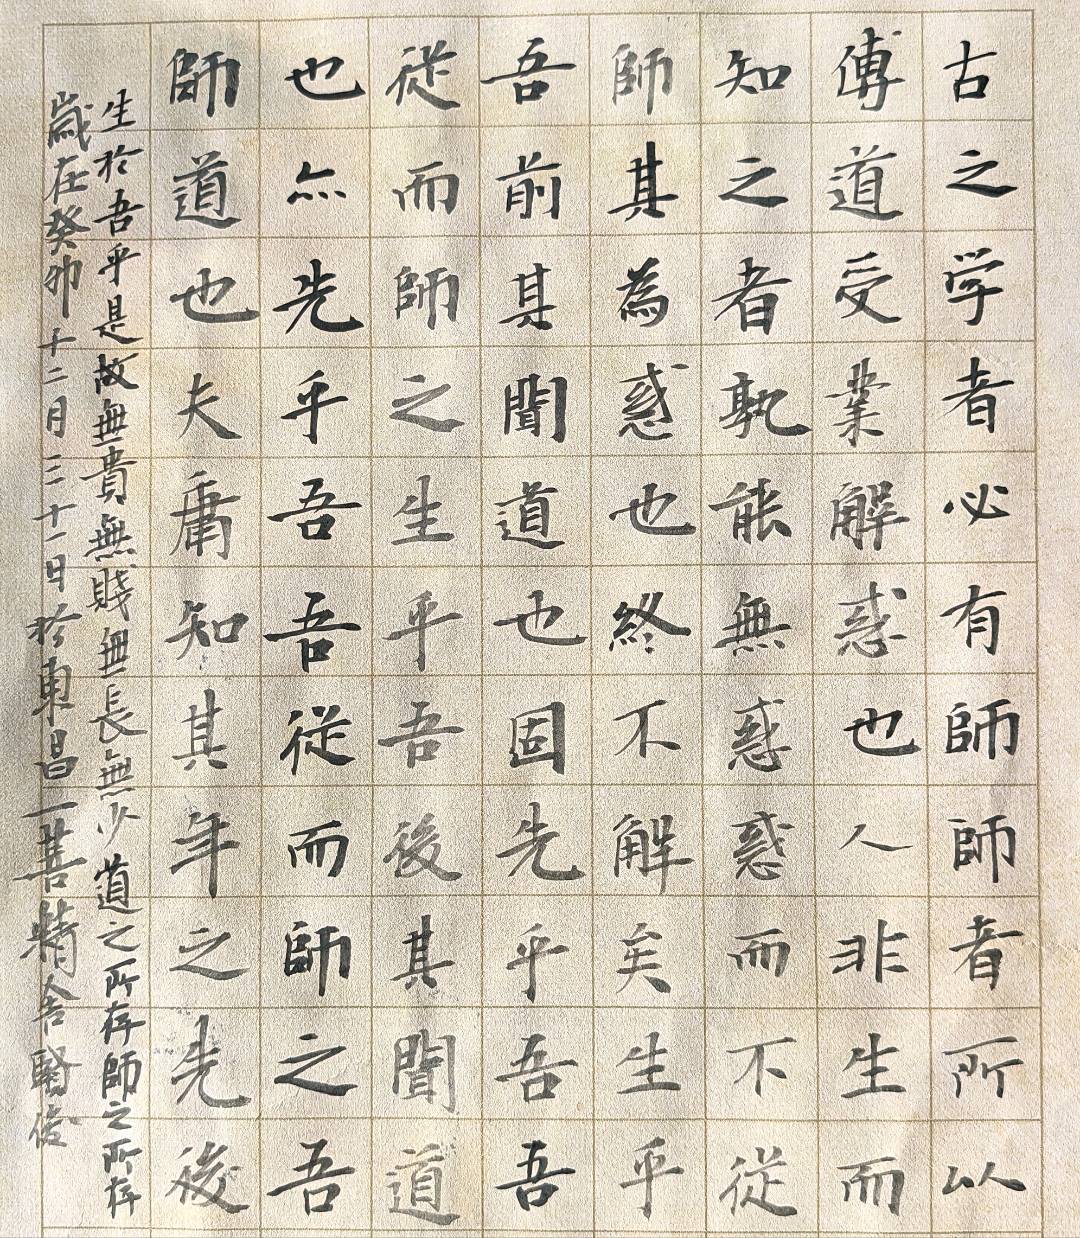 古之学者必有師師者所以
傳道受業解惑也人非生而
知之者孰能無惑惑而不從
師其為惑也終不解矣生乎
吾前其聞道也固先乎吾吾
從而師之生乎吾後其聞道
也亦先乎吾吾從而師之吾
師道也夫庸知其年之先後
生於吾乎是故無貴無賤無長無少道之所存師之所存
歲在癸卯十二月三十一日於東昌一菩精舍賢俊